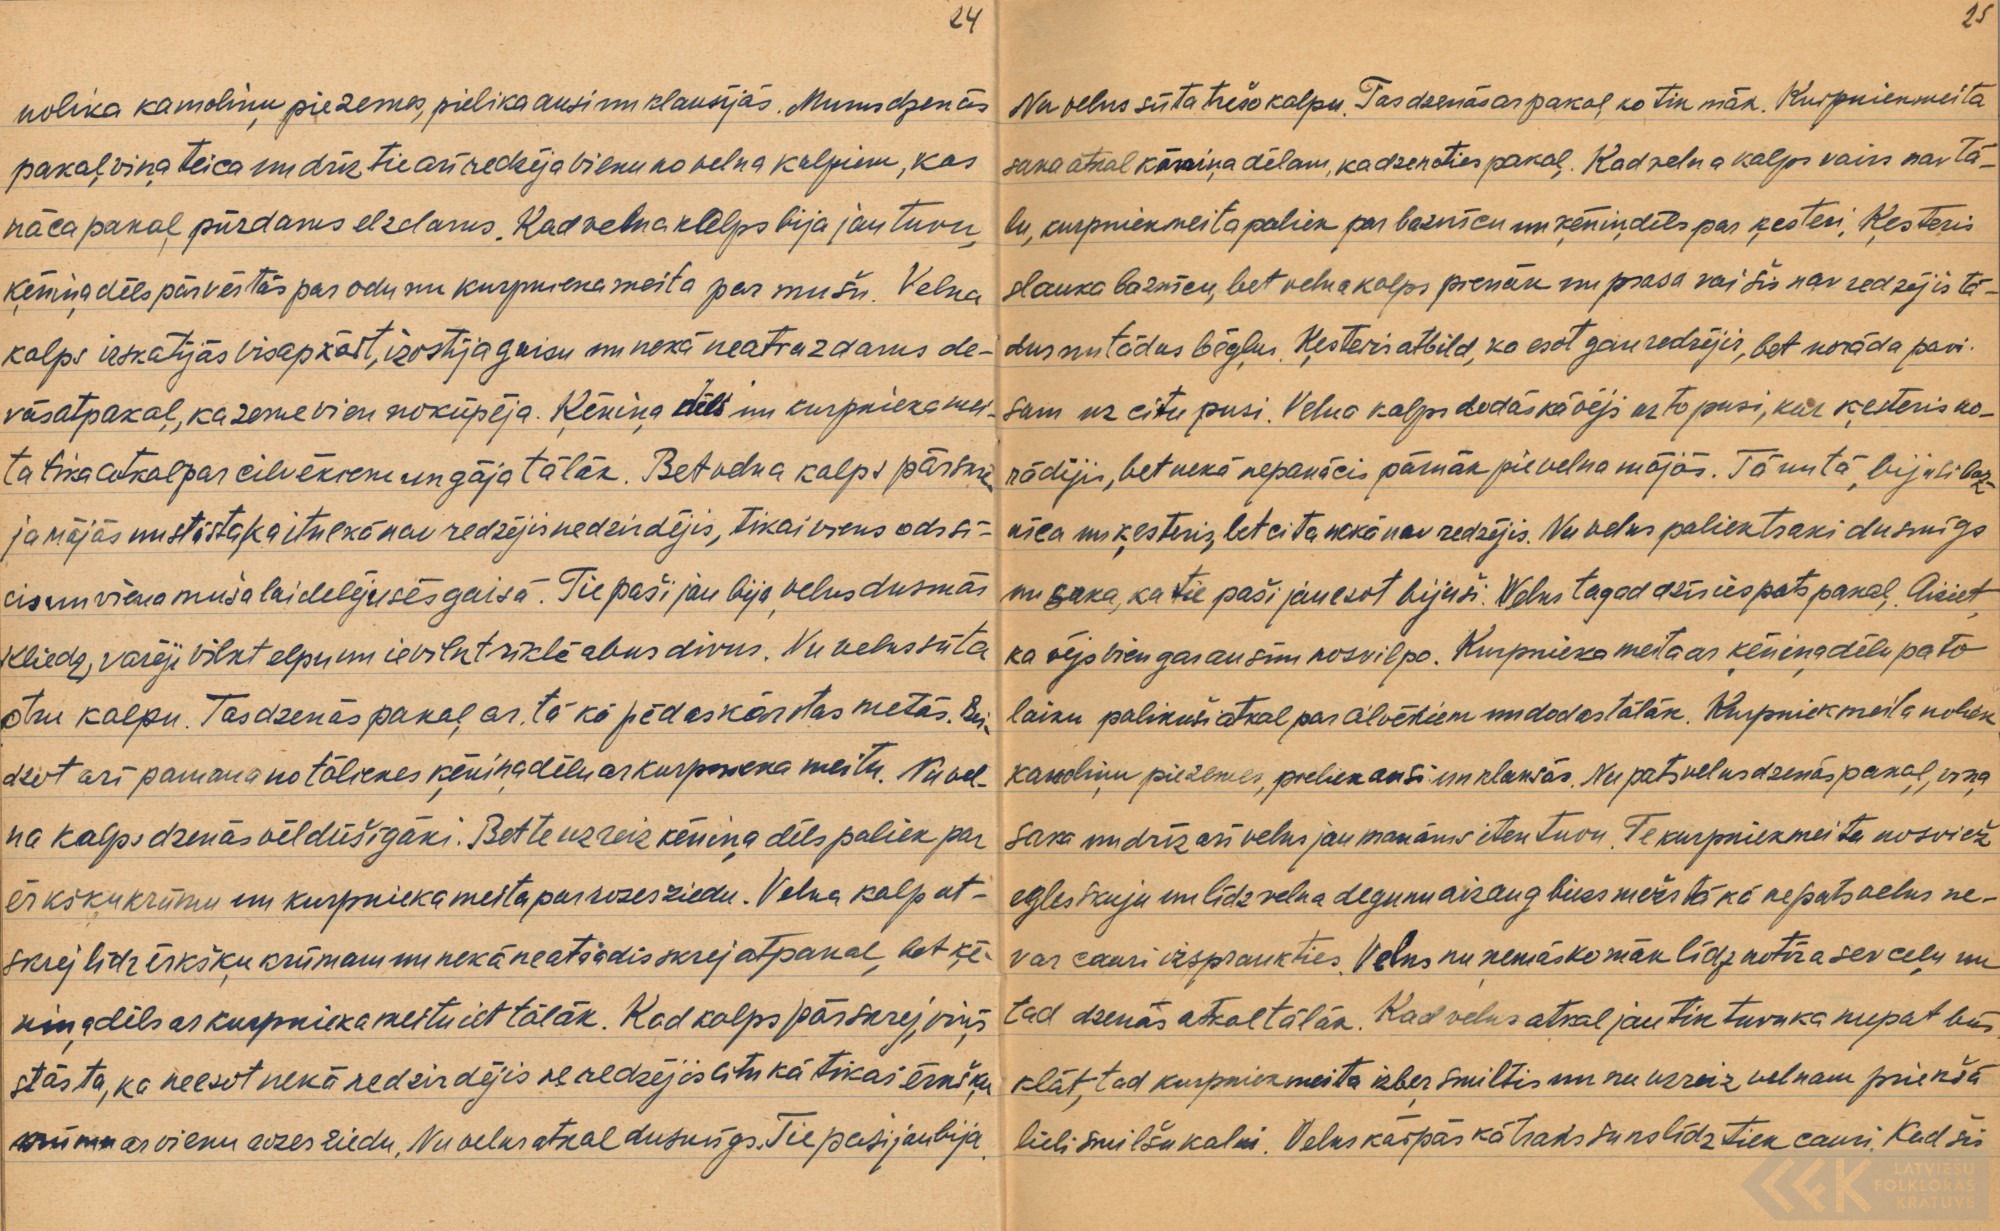 24
nolika kamoliņu pie zemes, pielika ausi un klausījās. Mums dzenās
pakaļ, viņa teica un drīz tie arī redzēja vienu no velna kalpiem, kas
nāca pakaļ pūzdams elzdams. Kad velna kalps bija jau tuvu,
ķēniņa dēls pārvērtās par odu un kurpnieka meita par mušu. Velna
kalps izskatījās visapkārt, izostīja gaisu un nekā neatrazdams de-
vās atpakaļ, ka zeme vien nokūpēja. Ķēniņa dēls un kurpnieka mei-
ta tika atkal par cilvēkiem un gāja tālāk. Bet velna kalps pārskrē-
ja mājās un stāsta, ka it nekā nav redzējis nedzirdējis, tikai viens ods sī-
cis un viena muša laidelējusēs gaisā. Tie paši jau bija, velns dusmās
kliedz, varēji vilkt elpu un ievilkt rīklē abus divus. Nu velns sūta
otru kalpu. Tas dzenās pakaļ ar, tā kā pēdas kārstas metās. Bei-
dzot arī pamana no tālienes ķēniņa dēlu ar kurpnieka meitu. Nu vel-
na kalps dzenās vēl dūšīgāki. Bet te uzreiz ķēniņa dēls paliek par
ērkšķu krūmu un kurpnieka meita par rozes ziedu. Velna kalp at-
skrej līdz ērkšķu krūmam un nekā neatradis skrej atpakaļ, bet ķē-
niņa dēls ar kurpnieka meitu iet tālāk. Kad kalps pārskrej, viņš
stāsta, ka neesot nekā nedzirdējis ne redzējis citu kā tikai ērkšķu
krūmu ar vienu rozes ziedu. Nu velns atkal dusmīgs. Tie paši jau bija.
25
Nu velns sūta trešo kalpu. Tas dzenās ar pakaļ, ko tik māk. Kurpniekmeita
saka atkal ķēniņa dēlam, ka dzenoties pakaļ. Kad velna kalps vairs nav tā-
lu, kurpniekmeita paliek par baznīcu un ķēniņdēls par ķesteri. Ķesteris
slauka baznīcu, bet velna kalps pienāk un prasa vai šis nav redzējis tā-
dus un tādus bēgļus. Ķesteris atbild, ko esot gan redzējis, bet norāda pavi-
sam uz citu pusi. Velna kalps dodās kā vējs uz to pusi, kur ķesteris no-
rādījis, bet nekā nepanācis pārnāk pie velna mājās. Tā un tā, bijusi baz-
nīca un ķesteris, bet cita nekā nav redzējis. Nu velns paliek traki dusmīgs
un saka, ka tie paši jau esot bijuši. Velns tagad dzīsies pats pakaļ. Aiziet,
ka vējs vien gar ausīm nosvilpo. Kurpnieka meita ar ķēniņa dēlu pa to
laiku palikuši atkal par cilvēkiem un dodas tālāk. Kurpniekmeita noliek
kamoliņu pie zemes, pieliek ausi un klausās. Nu pats velns dzenās pakaļ, viņa
saka un drīz arī velns jau manāms iten tuvu. Te kurpniekmeita nosviež
egles skuju un līdz velna degunu aizaug biezs mežs tā kā ne pats velns ne-
var cauri izspraukties. Velns nu ņemās ko māk līdz notīra sev ceļu un
tad dzenās atkal tālāk. Kad velns atkal jau tik tuvu ka nupat būs
klāt, tad kurpniekmeita izber smiltis un nu uzreiz velnam priekšā
lieli smilšu kalni. Velns kārpās kā traks suns līdz tiek cauri. Kad šis
LATVIEŠU
FOLKLORAS
KRĀTUVE